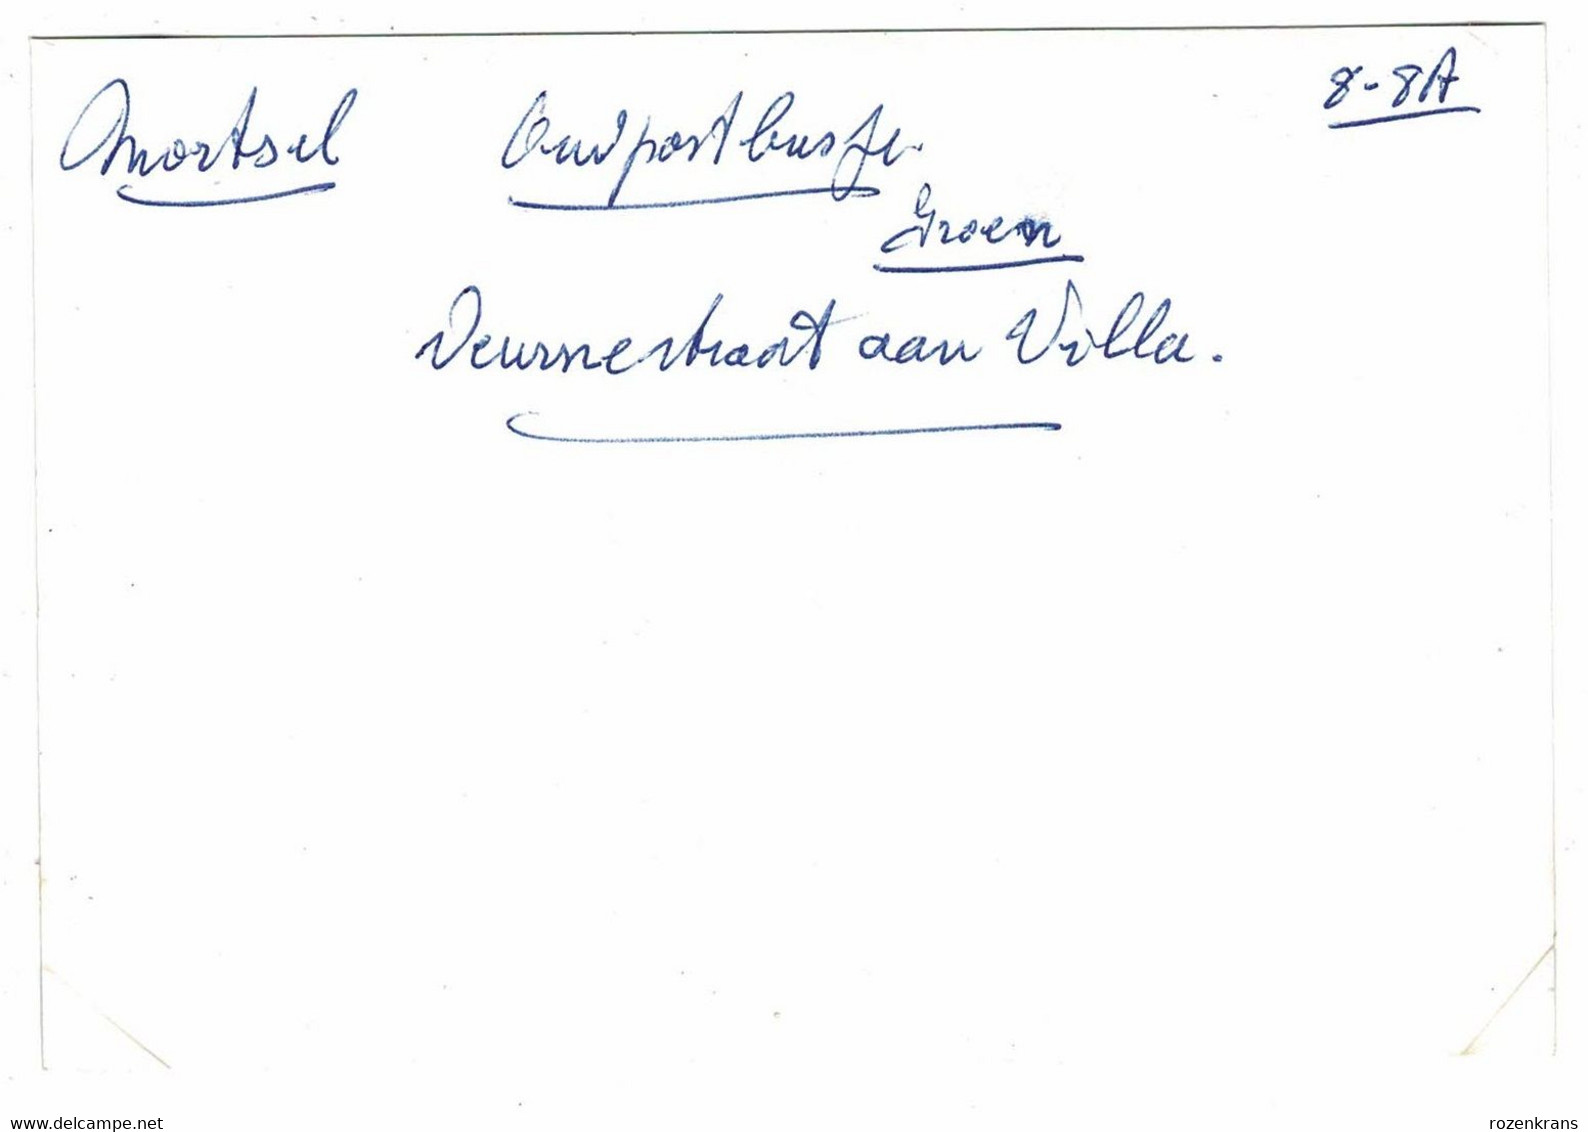 8-8A
Mortsel Oud postbusje
Groen
Deurnestraat aan Villa.
www.delcampe.net
rozenkrans